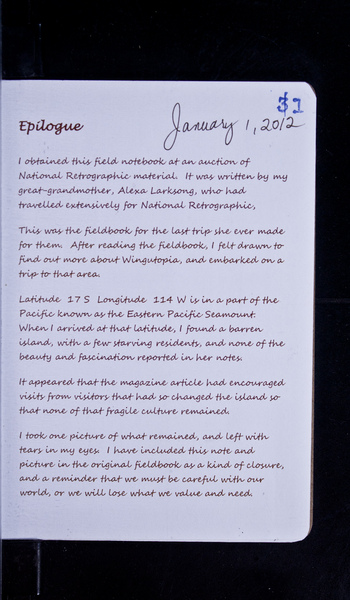 31
January 1, 2012
Epilogue
I obtained this field notebook at an auction of
National Retrographic material. It was written by my
great-grandmother, Alexa Larksong, who had
travelled extensively for National Retrographic,
This was the fieldbook for the last trip she ever made
for them. After reading the fieldbook, I felt drawn to
find out more about Wingutopia, and embarked on a
trip to that area.
Latitude 17 S Longitude 114 W is in a part of the
Pacific known as the Eastern Pacific Seamount.
When I arrived at that latitude, I found a barren
island, with a few starving residents, and none of the
beauty and fascination reported in her notes.
It appeared that the magazine article had encouraged
visits from visitors that had so changed the island so
that none of that fragile culture remained.
I took one picture of what remained, and left with
tears in my eyes. I have included this note and
picture in the original fieldbook as a kind of closure,
and a reminder that we must be careful with our
world, or we will lose what we value and need.